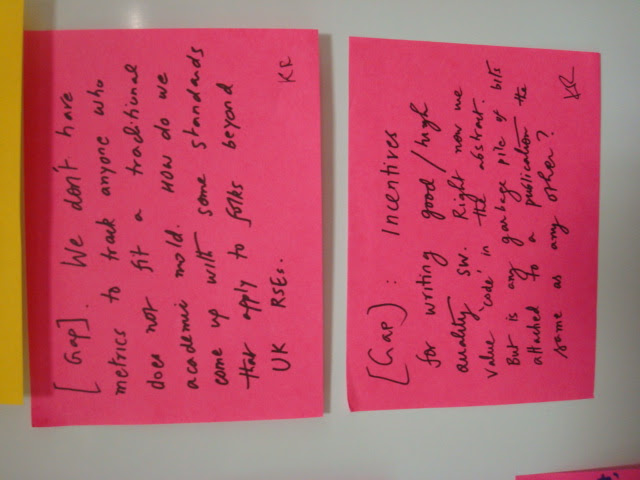 [Gap]. We don't have
metrics to track anyone who
does not fit a traditional
academic mold. How do we
come up with some standards
that apply to folks beyond
UK RSEs.
KR
[Gap): Incentives
for writing good/high
quality sw. Right now we
value 'code' in the abstract.
But is any garbage pile of bits
attached to a publication the
same as any other?
KR